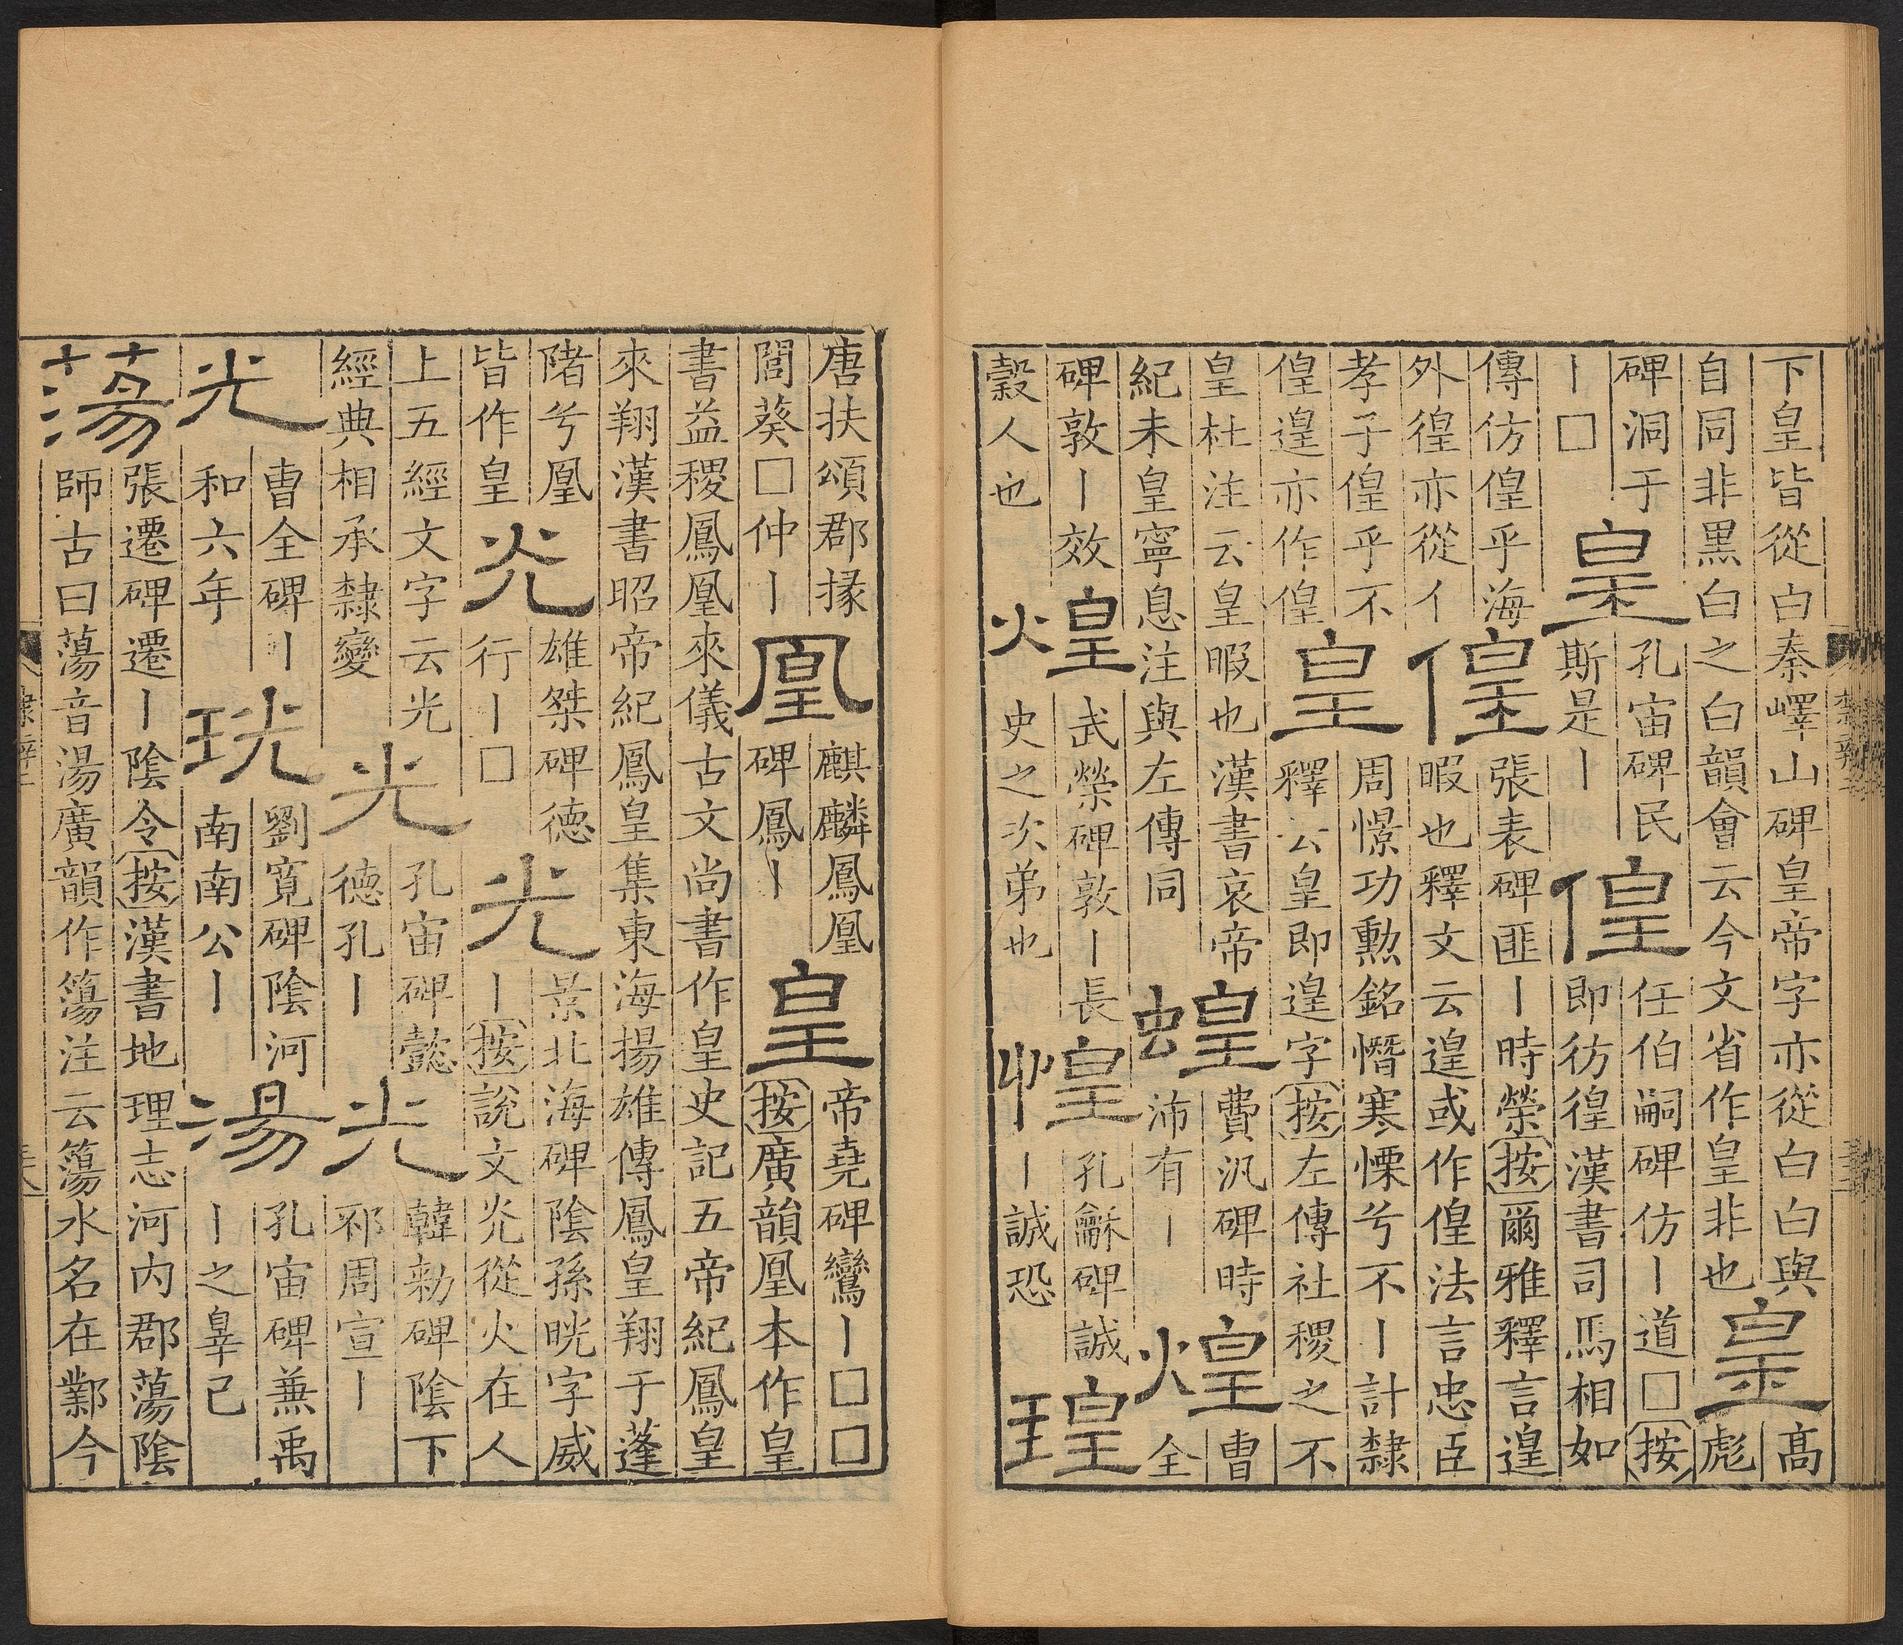 下皇皆從白秦嶧山碑皇帝字亦從白白與
自同非黑白之白韻會云今文省作皇非也
皇
高
彪
碑洞于
丨□
皇
孔宙碑民
斯是丨
偟
任伯嗣碑仿丨道□按
即彷徨漢書司馬相如
傳仿偟乎海
外徨亦從彳
偟
張表碑匪丨時榮按爾雅釋言遑
暇也釋文云遑或作偟法言忠臣
孝子偟乎不
偟遑亦作偟
皇
周憬功勳銘憯寒慄兮不丨計隸
釋云皇即遑字按左傳社稷之不
皇杜注云皇暇也漢書哀帝
紀未皇寧息注與左傳同
蝗
費汎碑時
沛有丨
煌
曹
全
碑敦丨效
穀人也
煌
武榮碑敦丨長
史之次弟也
惶
孔龢碑誠
丨誠恐
瑝
唐扶頌郡掾
閭葵□仲丨
凰
麒麟鳳凰
碑鳳丨
皇
帝堯碑鸞丨□□
按廣韻凰本作皇
書益稷鳳凰來儀古文尚書作皇史記五帝紀鳳皇
來翔漢書昭帝紀鳳皇集東海揚雄傳鳳皇翔于蓬
陼兮凰
皆作皇
灮
雄桀碑德
行丨□
光
景北海碑陰孫晄字威
丨按說文灮從火在人
上五經文字云光
經典相承隸變
光
孔宙碑懿
德孔丨
光
韓勑碑陰下
邳周宣丨
光
曹全碑丨
和六年
珖
劉寬碑陰河
南南公丨
湯
孔宙碑兼禹
丨之辠己
蕩
張遷碑遷丨陰令按漢書地理志河內郡蕩陰
師古曰蕩音湯廣韻作簜注云簜水名在鄴今